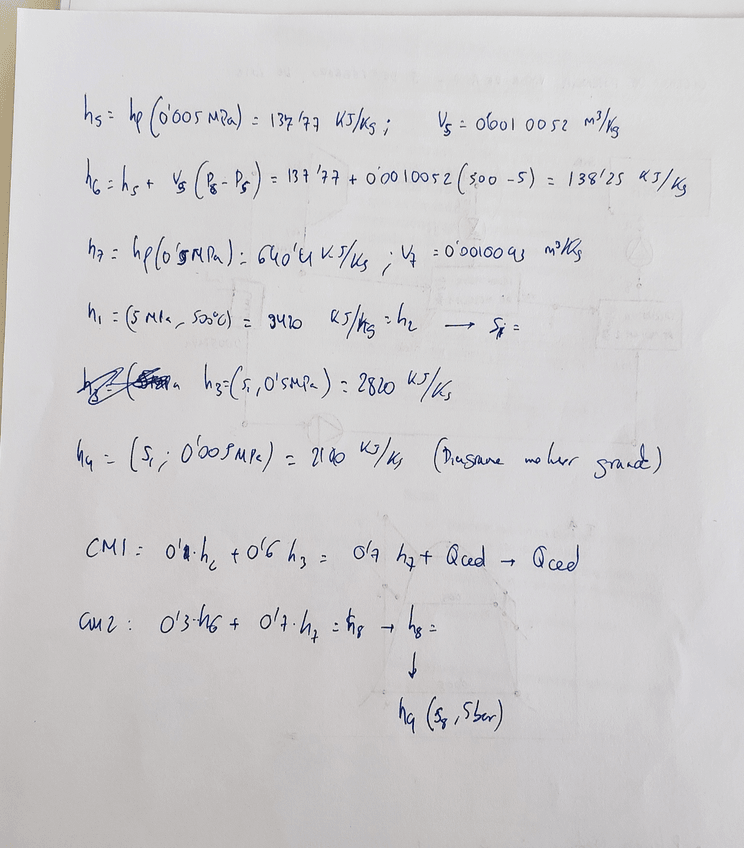 h5 = hp (0'005 MPa) = 137'77 KJ/Kg ; V5 = 0'0010052 m³/Kg
h6 = h5 + V5 (P8 - P5) = 137'77 + 0'0010052 (500 - 5) = 138'25 KJ/Kg
h7 = hp (0'5 MPa) = 640'4 KJ/Kg ; V7 = 0'0010093 m³/Kg
h1 = (5 MPa, 500ºC) = 3420 KJ/Kg = h2 → S1 =
h3 = (S1, 0'5 MPa) = 2820 KJ/Kg
h4 = (S1 ; 0'005 MPa) = 2100 KJ/Kg (Diagrama moliere grande)
CM1 : 0'1·h2 + 0'6 h3 = 0'7 h7 + Qced → Qced
CM2 : 0'3·h6 + 0'7·h7 = h8 → h8 =
↓
h9 (S8, 5bar)